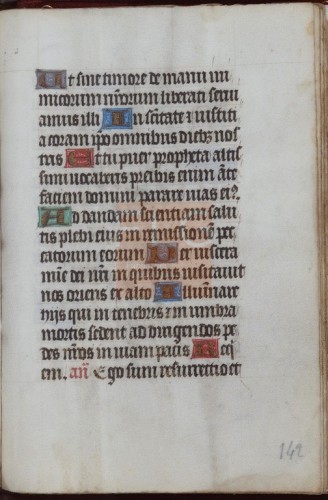 Ut sine timore de manu ini
micorum nr̄orum liberati serui
amus illi In sc̄itate ⁊ iustiti
a coram ip̄o omnibus dieb₉ nos
tris Et tu puer propheta altis
simi vocaberis preibis enim an̄te
faciem domini parare uias ei₉.
Ad dandam sci entiam salu
tis plebi eius in remissionē pec
catorum eorum Per uiscera
mīe dei nr̄i in quibus uisitauit
nos oriens ex alto Illuminare
hijs qui in tenebris ⁊ in umbra
mortis sedent ad dirigendos pe
des nr̄os in uiam pacis Req̄i
em. añ Ego sum resurrectio et
142